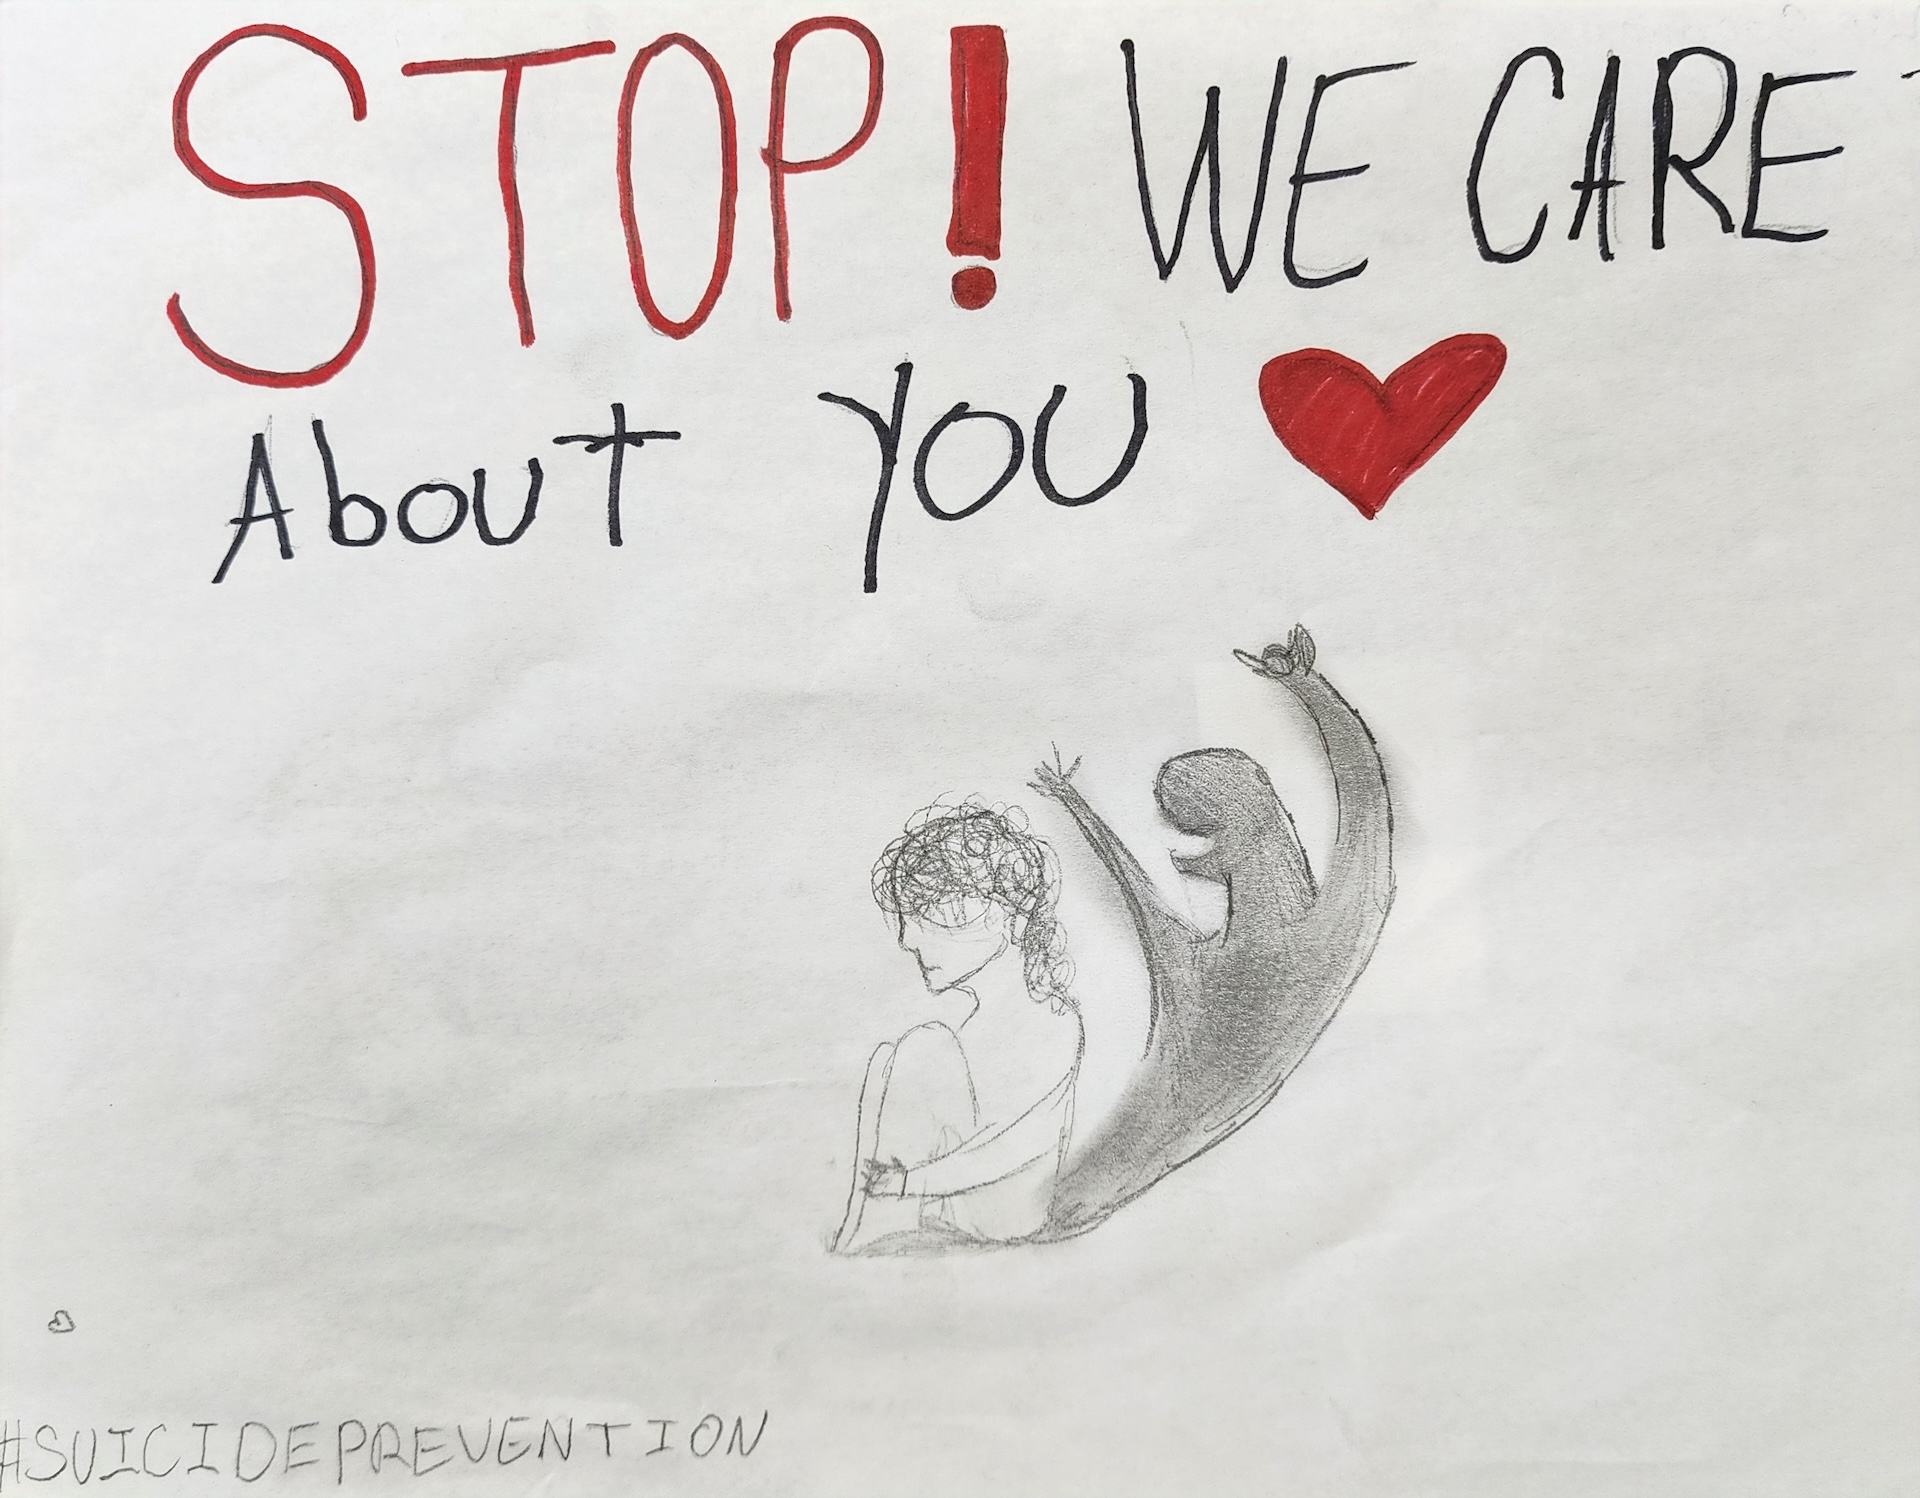 STOP! WE CARE
About YOU
#SUICIDEPREVENTION